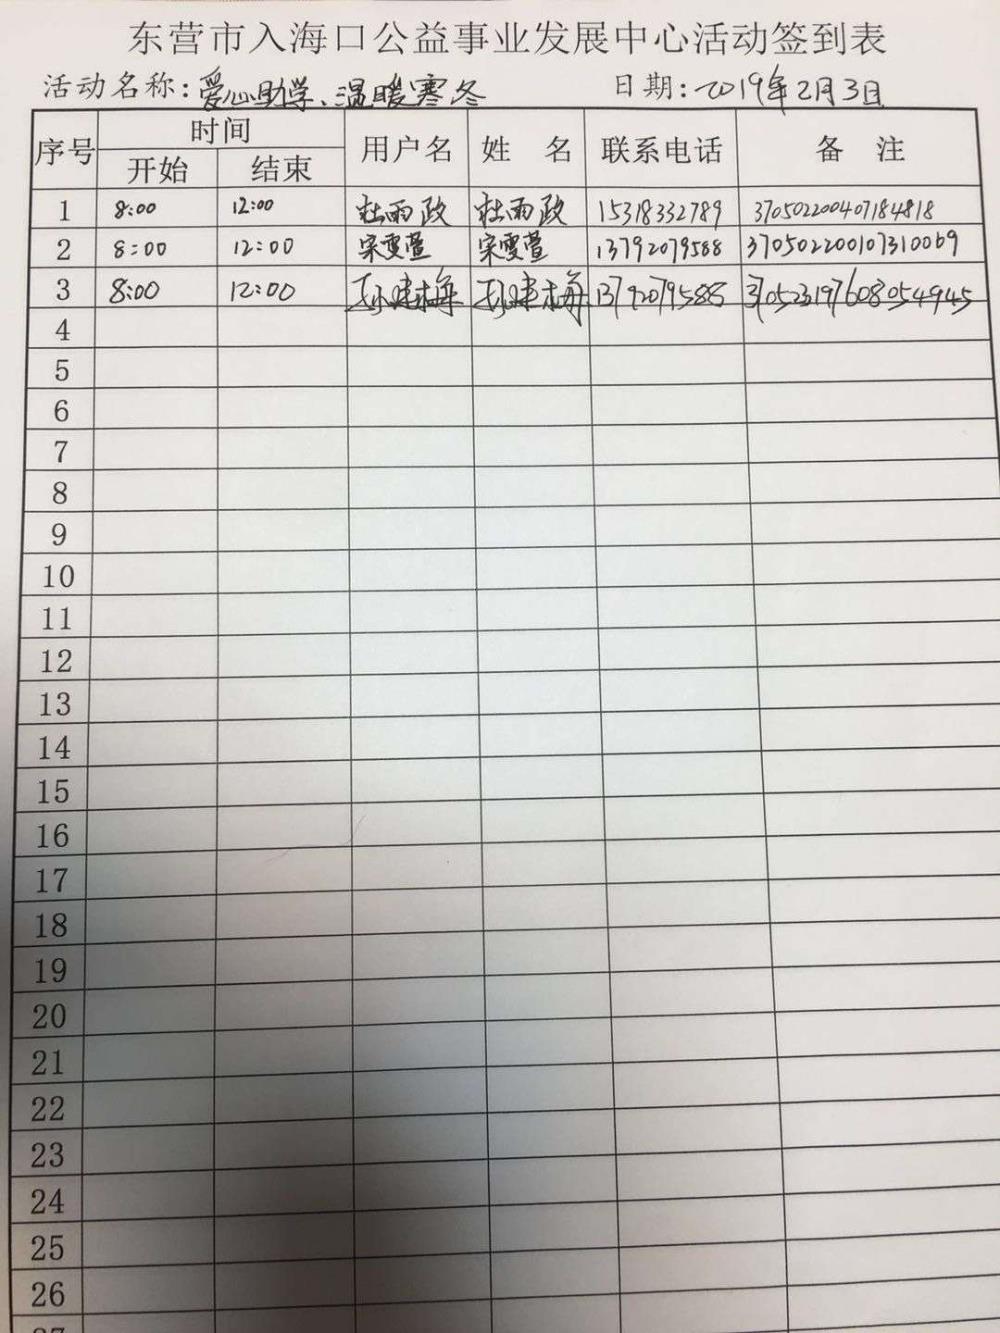 东营市入海口公益事业发展中心活动签到表
活动名称:爱心助学、温暖寒冬 日期:2019年2月3日
序号 时间 用户名 姓 名 联系电话 备 注
开始 结束
1 8:00 12:00 杜雨政 杜雨政 15318332789 370502200407184818
2 8:00 12:00 宋雯萱 宋雯萱 13792079588 370502200107310069
3 8:00 12:00 13792079588 370523197608054945
4
5
6
7
8
9
10
11
12
13
14
15
16
17
18
19
20
21
22
23
24
25
26
27